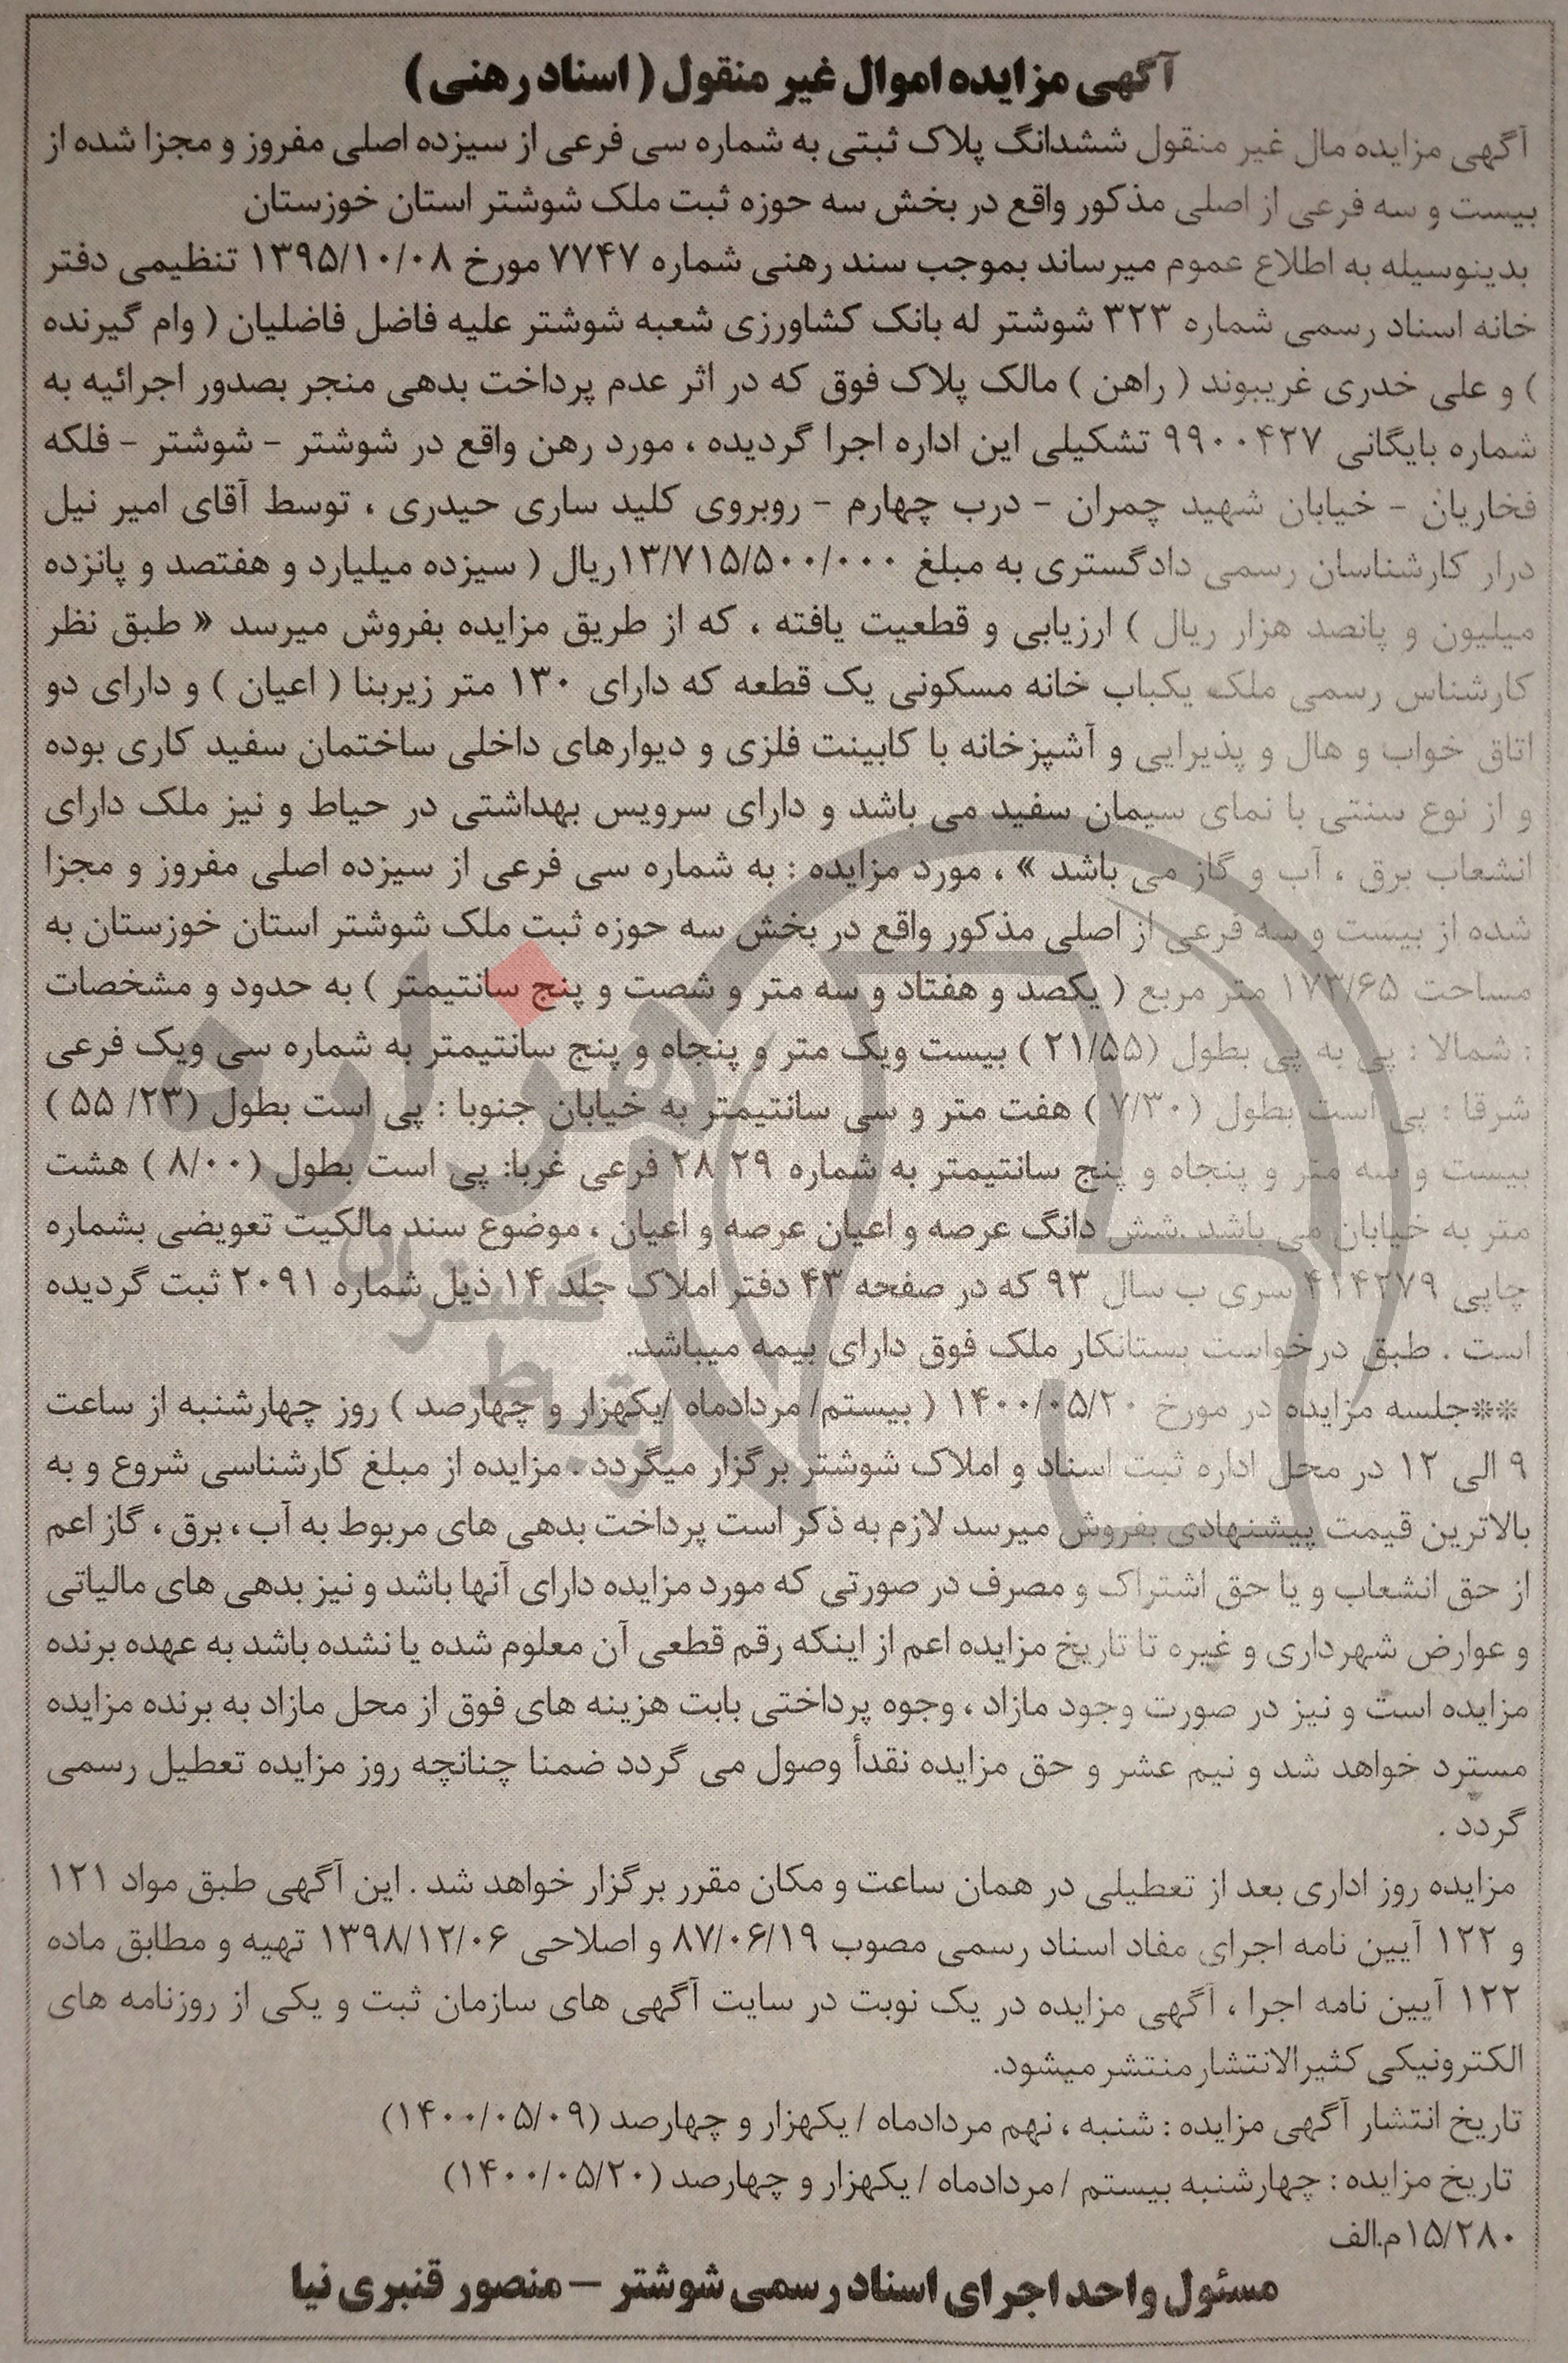 آگهی مزایده اموال غیر منقول ( اسناد رهنی )
آگهی مزایده مال غیر منقول ششدانگ پلاک ثبتی به شماره سی فرعی از سیزده اصلی مفروز و مجزا شده از
بیست و سه فرعی از اصلی مذکور واقع در بخش سه حوزه ثبت ملک شوشتر استان خوزستان
بدینوسیله به اطلاع عموم میرساند بموجب سند رهنی شماره ۷۷۴۷ مورخ ۱۳۹۵/۱۰/۰۸ تنظیمی دفتر
خانه اسناد رسمی شماره ۳۲۳ شوشتر له بانک کشاورزی شعبه شوشتر علیه فاضل فاضلیان ( وام گیرنده
) و علی خدری غریبوند ( راهن ) مالک پلاک فوق که در اثر عدم پرداخت بدهی منجر بصدور اجرائیه به
شماره بایگانی ۹۹۰۰۴۲۷ تشکیلی این اداره اجرا گردیده ، مورد رهن واقع در شوشتر - شوشتر - فلکه
فخاریان - خیابان شهید چمران - درب چهارم - روبروی کلید ساری حیدری ، توسط آقای امیر نیل
درار کارشناسان رسمی دادگستری به مبلغ ۱۳/۷۱۵/۵۰۰/۰۰۰ریال ( سیزده میلیارد و هفتصد و پانزده
میلیون و پانصد هزار ریال ) ارزیابی و قطعیت یافته ، که از طریق مزایده بفروش میرسد « طبق نظر
کارشناس رسمی ملک یکباب خانه مسکونی یک قطعه که دارای ۱۳۰ متر زیربنا ( اعیان ) و دارای دو
اتاق خواب و هال و پذیرایی و آشپزخانه با کابینت فلزی و دیوارهای داخلی ساختمان سفید کاری بوده
و از نوع سنتی با نمای سیمان سفید می باشد و دارای سرویس بهداشتی در حیاط و نیز ملک دارای
انشعاب برق ، آب و گاز می باشد » ، مورد مزایده : به شماره سی فرعی از سیزده اصلی مفروز و مجزا
شده از بیست و سه فرعی از اصلی مذکور واقع در بخش سه حوزه ثبت ملک شوشتر استان خوزستان به
مساحت ۱۷۳/۶۵ متر مربع ( یکصد و هفتاد و سه متر و شصت و پنج سانتیمتر ) به حدود و مشخصات
: شمالا : پی به پی بطول (۲۱/۵۵ ) بیست ویک متر و پنجاه و پنج سانتیمتر به شماره سی ویک فرعی
شرقا : پی است بطول (۷/۳۰ ) هفت متر و سی سانتیمتر به خیابان جنوبا : پی است بطول (۲۳/ ۵۵ )
بیست و سه متر و پنجاه و پنج سانتیمتر به شماره ۲۹ ۲۸ فرعی غربا: پی است بطول (۸/۰۰ ) هشت
متر به خیابان می باشد .شش دانگ عرصه و اعیان عرصه و اعیان ، موضوع سند مالکیت تعویضی بشماره
چاپی ۴۱۴۲۷۹ سری ب سال ۹۳ که در صفحه ۴۳ دفتر املاک جلد ۱۴ ذیل شماره ۲۰۹۱ ثبت گردیده
است . طبق درخواست بستانکار ملک فوق دارای بیمه میباشد.
**جلسه مزایده در مورخ ۱۴۰۰/۰۵/۲۰ ( بیستم/ مردادماه /یکهزار و چهارصد ) روز چهارشنبه از ساعت
۹ الی ۱۲ در محل اداره ثبت اسناد و املاک شوشتر برگزار میگردد . مزایده از مبلغ کارشناسی شروع و به
بالاترین قیمت پیشنهادی بفروش میرسد لازم به ذکر است پرداخت بدهی های مربوط به آب ، برق ، گاز اعم
از حق انشعاب و یا حق اشتراک و مصرف در صورتی که مورد مزایده دارای آنها باشد و نیز بدهی های مالیاتی
و عوارض شهرداری و غیره تا تاریخ مزایده اعم از اینکه رقم قطعی آن معلوم شده یا نشده باشد به عهده برنده
مزایده است و نیز در صورت وجود مازاد ، وجوه پرداختی بابت هزینه های فوق از محل مازاد به برنده مزایده
مسترد خواهد شد و نیم عشر و حق مزایده نقدأ وصول می گردد ضمنا چنانچه روز مزایده تعطیل رسمی
گردد .
مزایده روز اداری بعد از تعطیلی در همان ساعت و مکان مقرر برگزار خواهد شد . این آگهی طبق مواد ۱۲۱
و ۱۲۲ آیین نامه اجرای مفاد اسناد رسمی مصوب ۸۷/۰۶/۱۹ و اصلاحی ۱۳۹۸/۱۲/۰۶ تهیه و مطابق ماده
۱۲۲ آیین نامه اجرا ، آگهی مزایده در یک نوبت در سایت آگهی های سازمان ثبت و یکی از روزنامه های
الکترونیکی کثیرالانتشار منتشر میشود.
تاریخ انتشار آگهی مزایده : شنبه ، نهم مردادماه / یکهزار و چهارصد (۱۴۰۰/۰۵/۰۹)
تاریخ مزایده : چهارشنبه بیستم / مردادماه / یکهزار و چهارصد (۱۴۰۰/۰۵/۲۰)
۱۵/۲۸۰م.الف
مسئول واحد اجرای اسناد رسمی شوشتر – منصور قنبری نیا